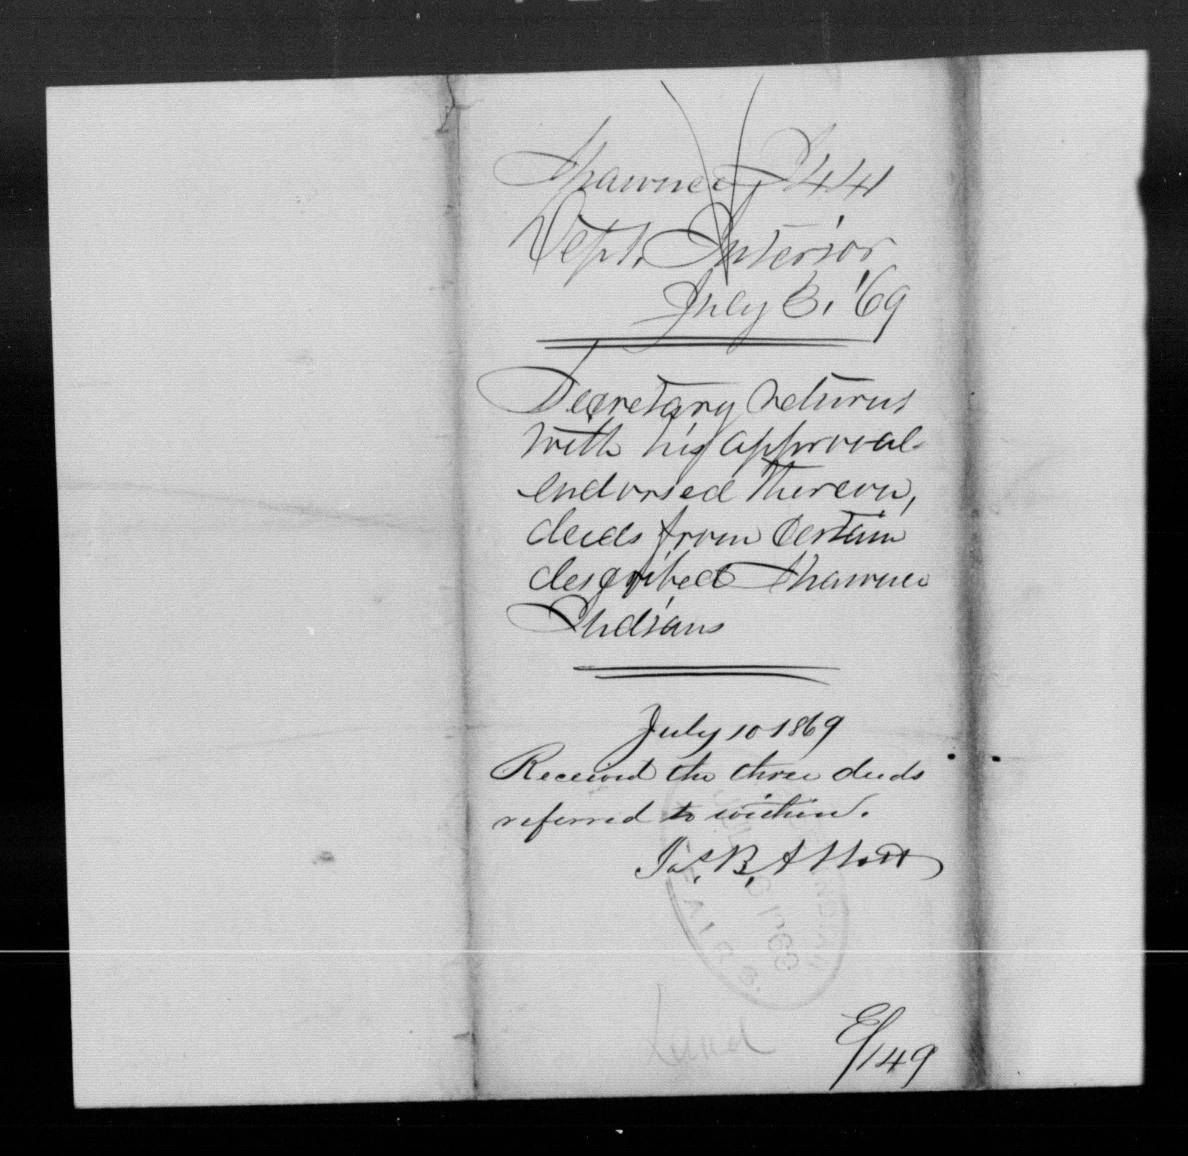 Shawnee, I 441
Dept. Interior
July 3, '69
Secretary returns
with his approval
endorsed thereon,
deeds from certain
described Shawnee
Indians
July 10 1869
Received the three deeds
referred to within.
Jas. B. Abbott
Land
E/149